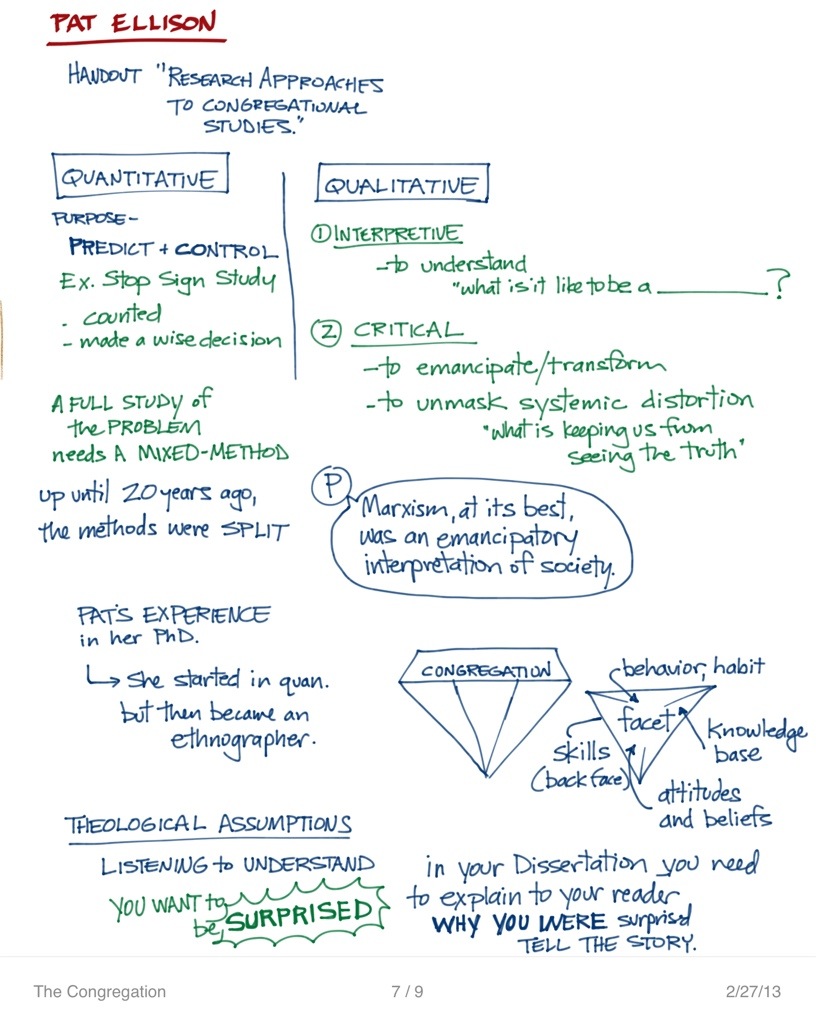 PAT ELLISON
HANDOUT "RESEARCH APPROACHES
TO CONGREGATIONAL
STUDIES."
QUANTITATIVE
PURPOSE-
PREDICT + CONTROL
Ex. Stop Sign Study
- counted
- made a wise decision
A FULL STUDY of
the PROBLEM
needs A MIXED-METHOD
up until 20 years ago,
the methods were SPLIT
QUALITATIVE
① INTERPRETIVE
-to understand
"what is it like to be a ________?
② CRITICAL
-to emancipate/transform
-to unmask systemic distortion
"what is keeping us from
seeing the truth"
P
Marxism, at its best,
was an emancipatory
interpretation of society.
PAT'S EXPERIENCE
in her PhD.
↳ She started in quan.
but then became an
ethnographer.
CONGREGATION
behavior, habit
facet
skills
(back face)
Knowledge
base
attitudes
and beliefs
THEOLOGICAL ASSUMPTIONS
LISTENING to UNDERSTAND
YOU WANT to
be SURPRISED
in your Dissertation you need
to explain to your reader
WHY YOU WERE surprised
TELL THE STORY.
The Congregation
7 / 9
2/27/13